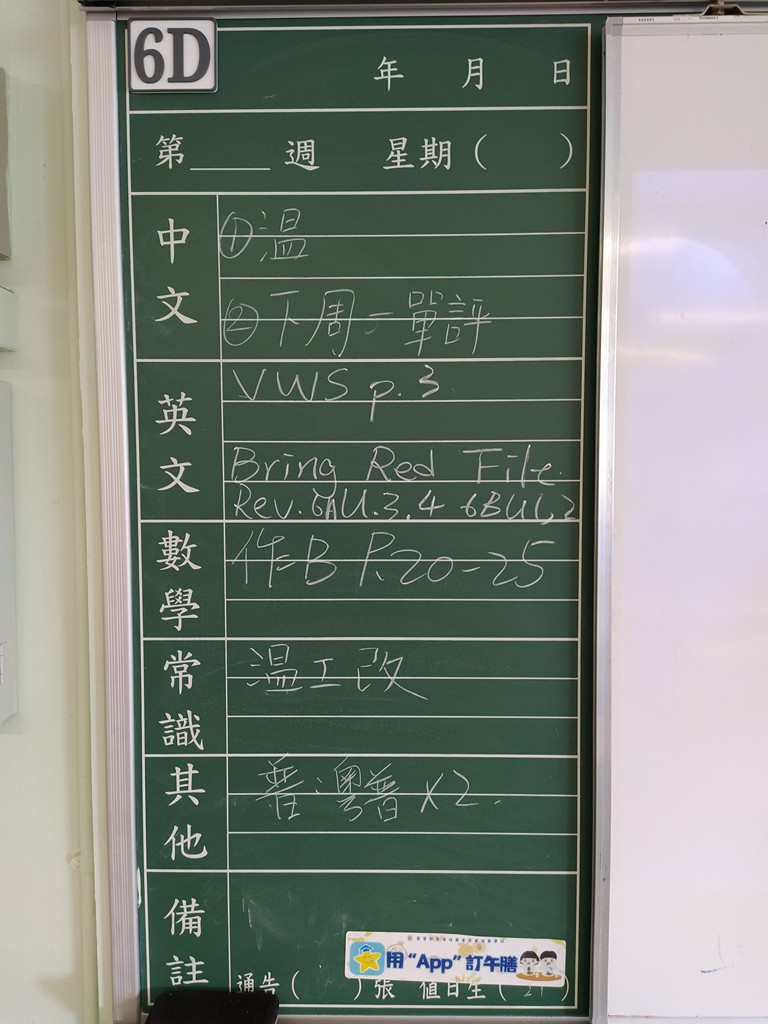 6D
年 月 日
第____週 星期( )
中文
①溫
②下周一單評
英文
VWS p.3
Bring Red File.
Rev. 6AU.3.4 6BU1,2
數學
作B P.20-25
常識
溫工改
其他
普:粵普x2.
備註
用“App”訂午膳
通告( )張 值日生( 21 )